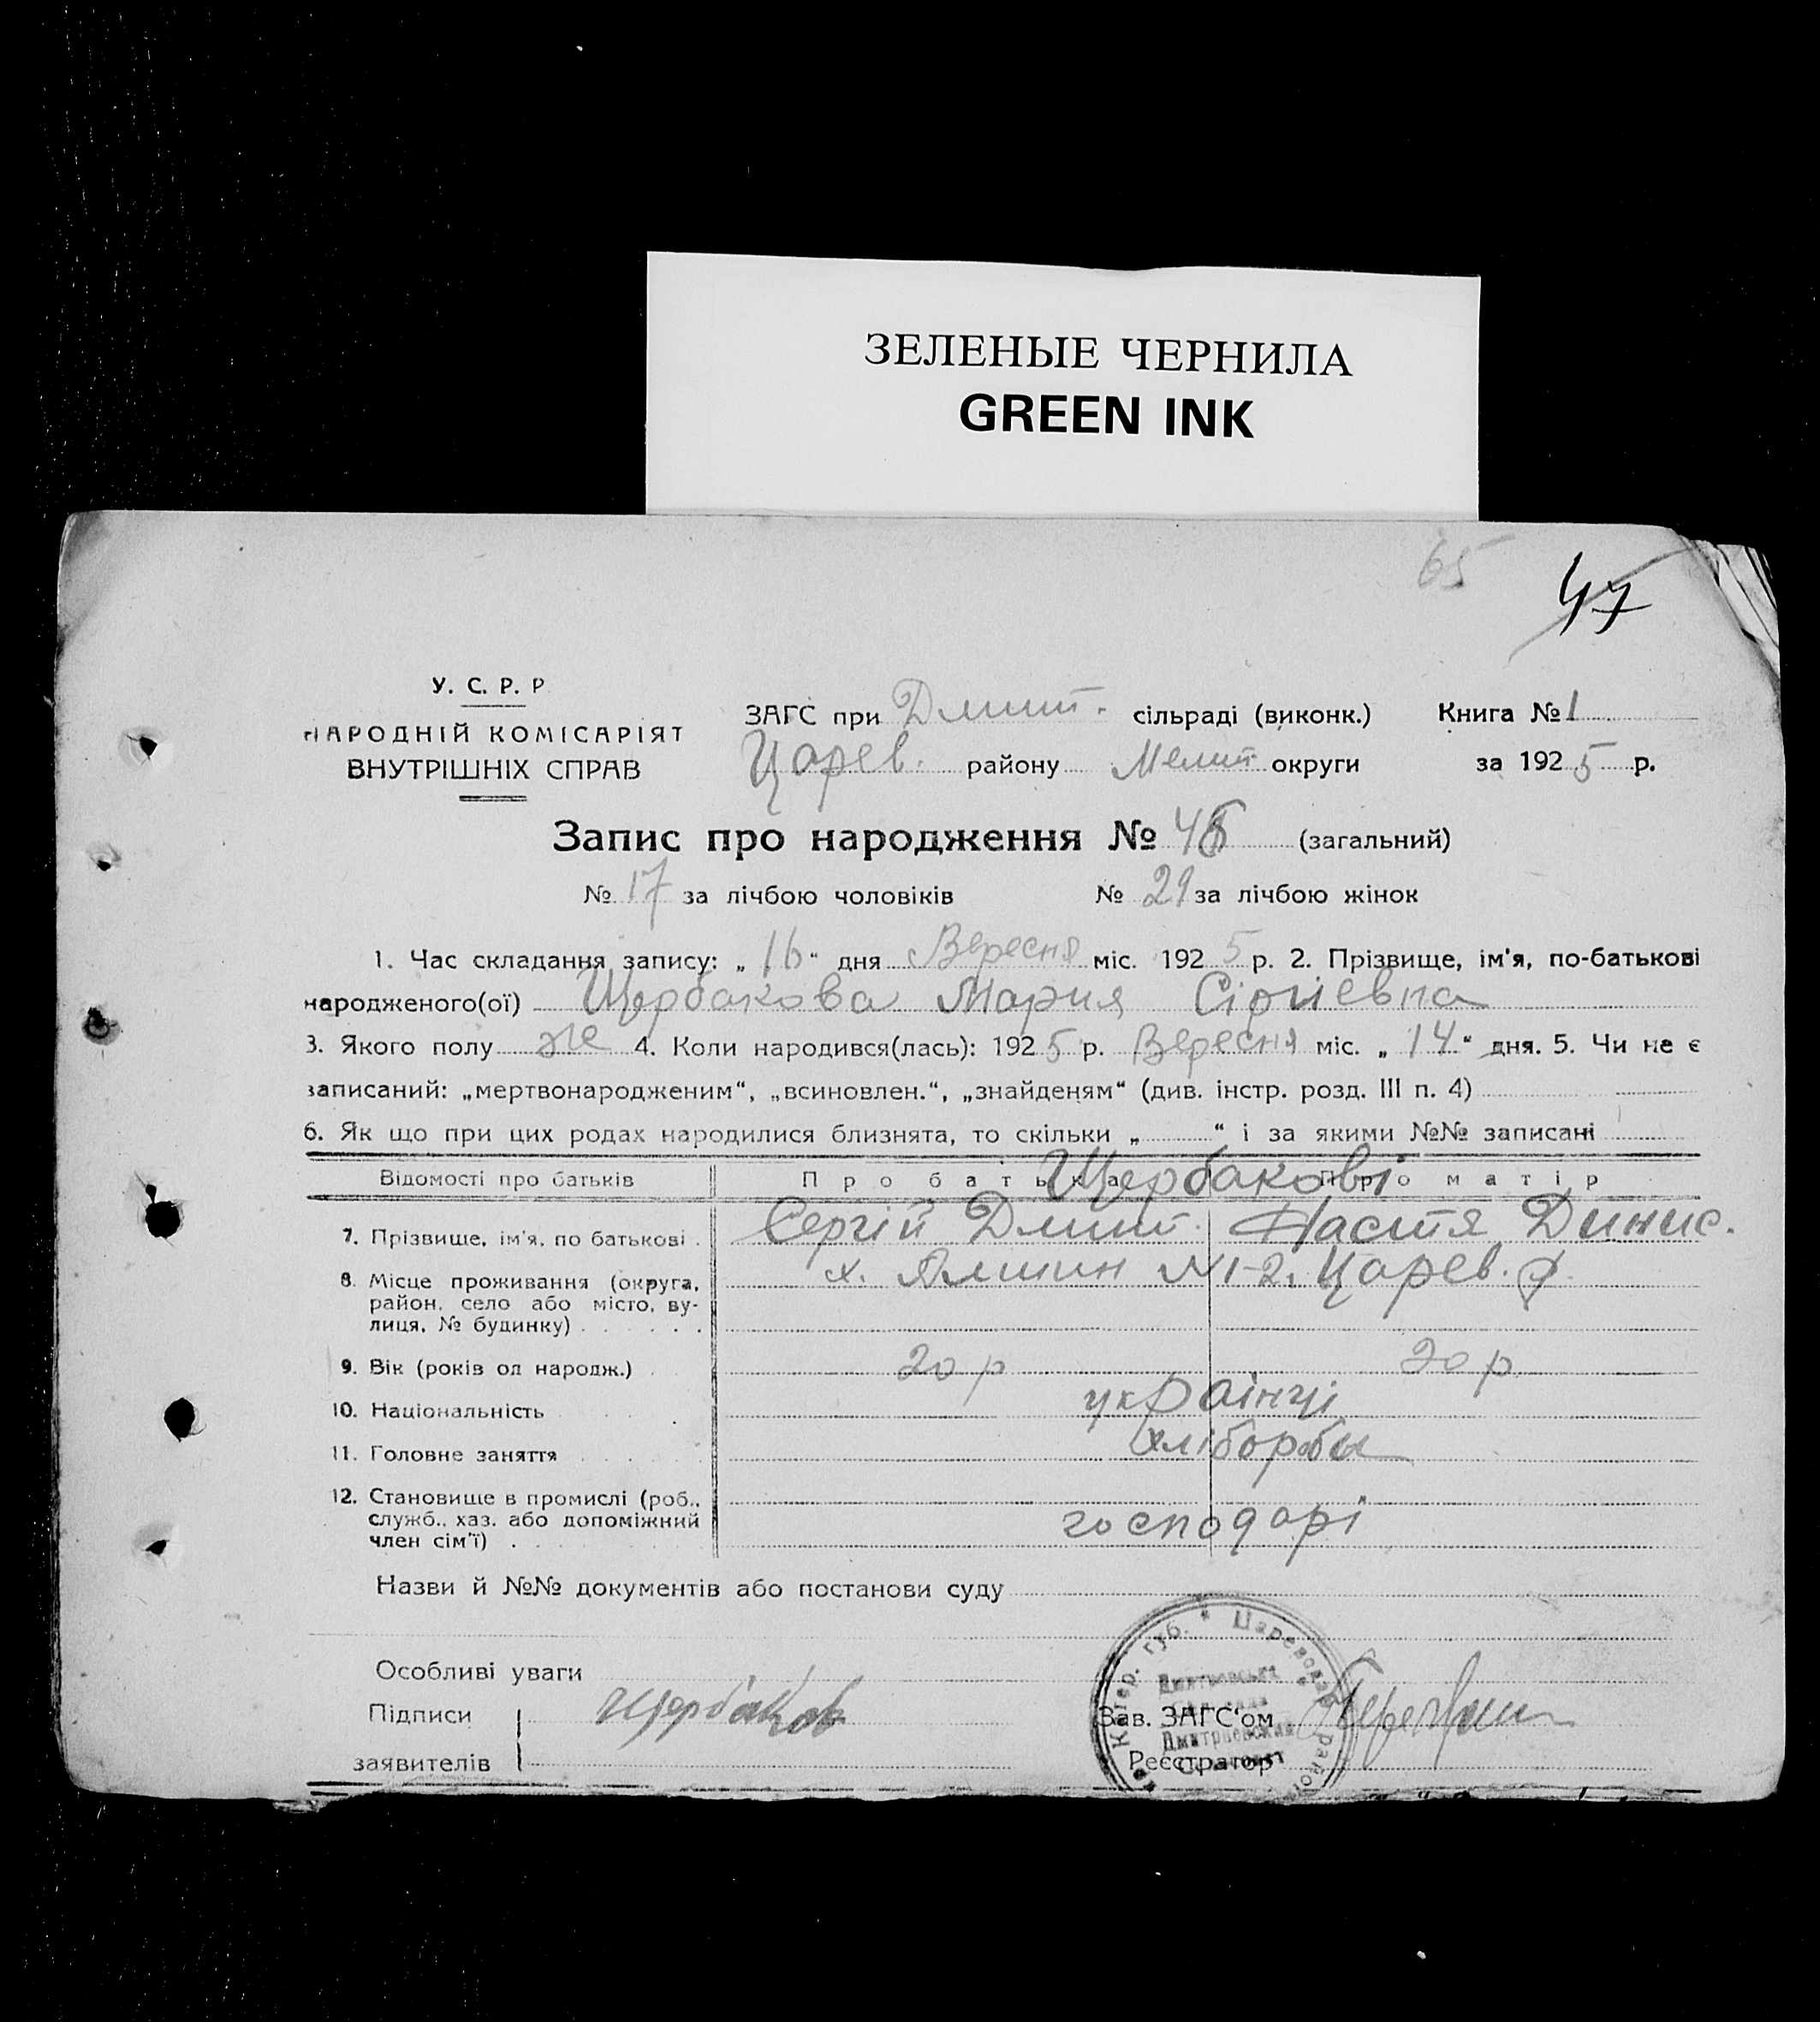 ЗЕЛЕНЫЕ ЧЕРНИЛА
GREEN INK
65
47
У. С. Р. Р
НАРОДНІЙ КОМІСАРІЯТ
ВНУТРІШНІХ СПРАВ
ЗАГС при Дмит. сільраді (виконк.) Книга № 1
Царев. району Мелит округи за 1925 р.
Запис про народження № (загальний)
№ 17 за лічбою чоловіків № 29 за лічбою жінок
1. Час складання запису: „16“ дня Вересня міс. 1925 р. 2. Прізвище, ім'я, по-батькові
народженого(ої) Щербакова Мария Сіргіевна
3. Якого полу же 4. Коли народився(лась): 1925 р. Вересня міс. „14“ дня. 5. Чи не є
записаний: „мертвонародженим“, „всиновлен.“, „знайденям“ (див. інстр. розд. III п. 4)
6. Як що при цих родах народилися близнята, то скільки „ “ і за якими №№ записані
Відомості про батьків Про батька Про матір
Щербакові
7. Прізвище, ім'я, по батькові Сергій Дмит. Настя Динис.
8. Місце проживання (округа, х. №1-2, Царев.
район, село або місто, ву-
лиця, № будинку)
9. Вік (років од народж.) 20 р 20 р
10. Національність українці
11. Головне заняття хлібороби
12. Становище в промислі (роб.,
служб., хаз. або допоміжний господарі
член сім'ї)
Назви й №№ документів або постанови суду
Особливі уваги
Підписи Щербаков Зав. ЗАГС'ом
заявителів Реєстратор
Катер. губ. * Царевода
Дмитровська
Дмитриевский